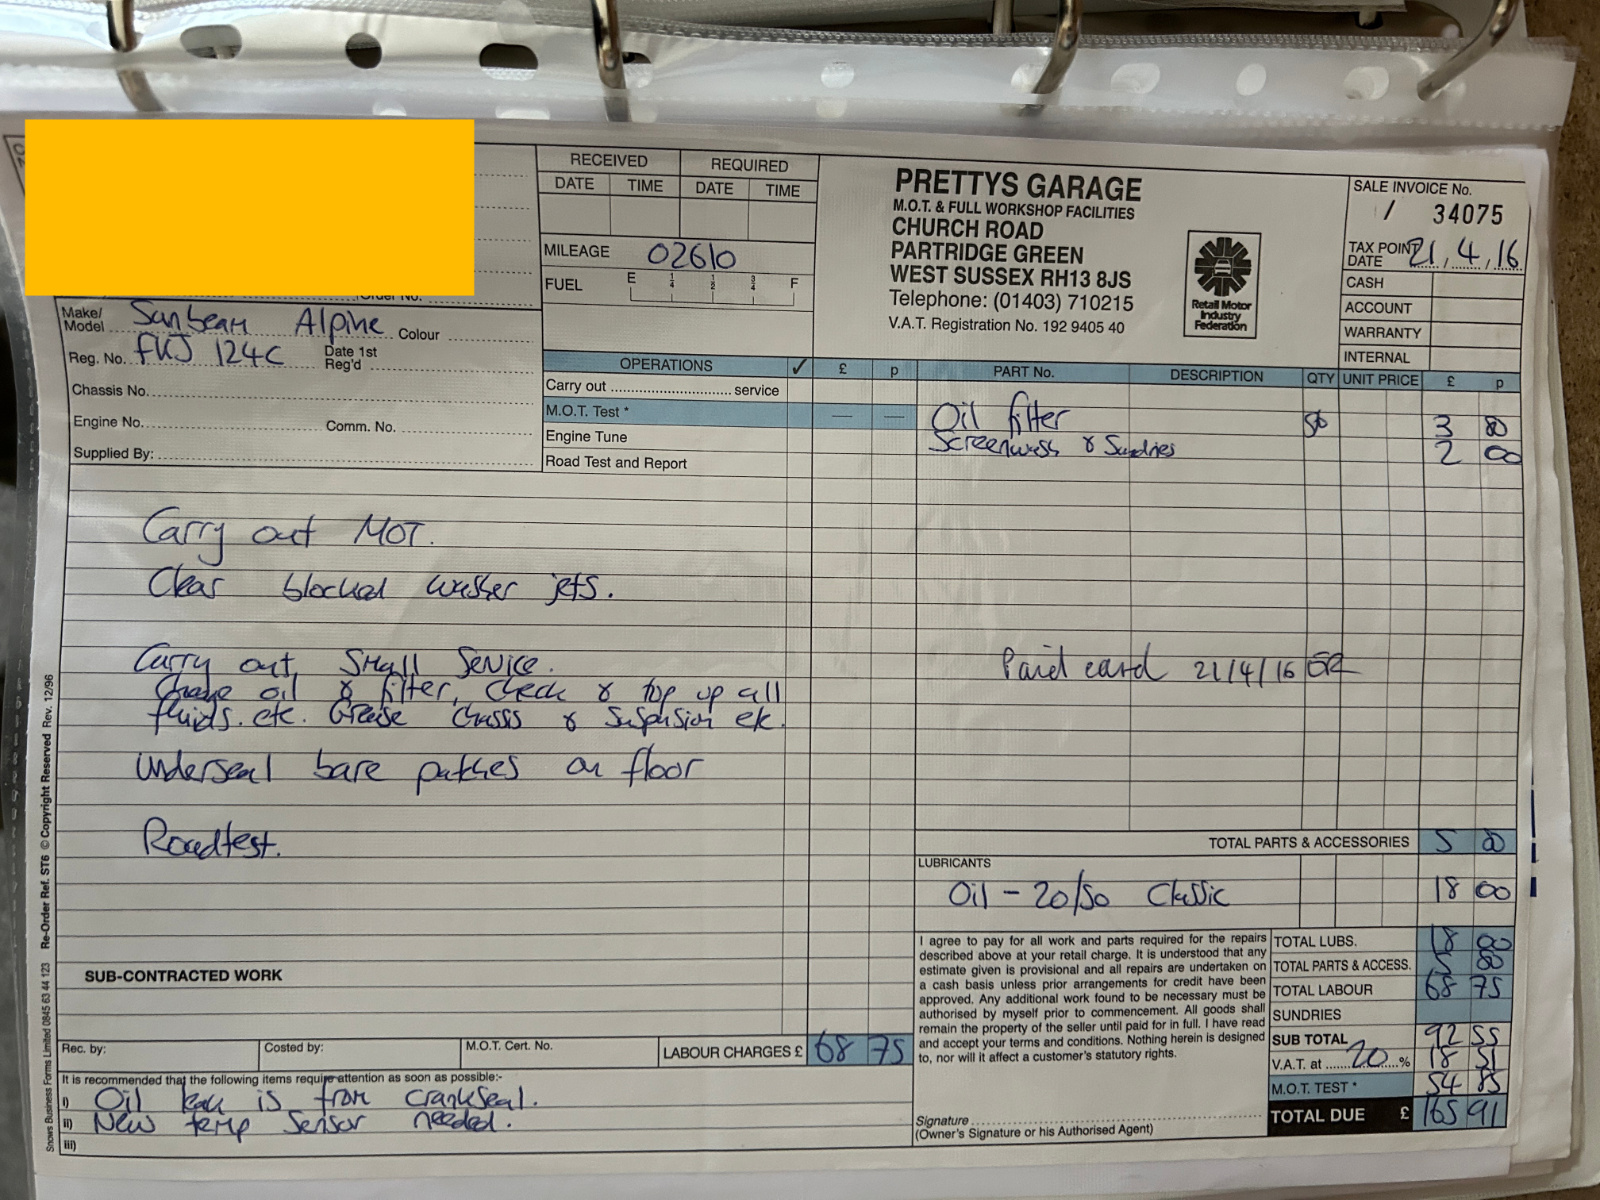 RECEIVED REQUIRED
DATE TIME DATE TIME
MILEAGE 02610
FUEL E 1/4 1/2 3/4 F
PRETTYS GARAGE
M.O.T. & FULL WORKSHOP FACILITIES
CHURCH ROAD
PARTRIDGE GREEN
WEST SUSSEX RH13 8JS
Telephone: (01403) 710215
V.A.T. Registration No. 192 9405 40
Retail Motor
Industry
Federation
SALE INVOICE No.
/ 34075
TAX POINT
DATE 21,4,16
CASH
ACCOUNT
WARRANTY
INTERNAL
Order No.
Make/
Model Sunbeam Alpine Colour
Reg. No. FKJ 124C Date 1st
Reg'd
Chassis No.
Engine No. Comm. No.
Supplied By:
OPERATIONS ✓ £ p
Carry out .................... service
M.O.T. Test * — —
Engine Tune
Road Test and Report
PART No. DESCRIPTION QTY UNIT PRICE £ p
Oil filter 3 80
Screenwash & Sundries 2 00
Carry out MOT.
Clear blocked washer jets.
Carry out, Small Service.
Change oil & filter, Check & top up all
fluids. etc. Grease Chassis & Suspension etc.
Underseal bare patches on floor
Roadtest.
Paid card 21/4/16
TOTAL PARTS & ACCESSORIES 5 80
LUBRICANTS
Oil - 20/50 Classic 18 00
SUB-CONTRACTED WORK
Rec. by: Costed by: M.O.T. Cert. No. LABOUR CHARGES £ 68 75
It is recommended that the following items require attention as soon as possible:-
i) Oil leak is from crankseal.
ii) New temp Sensor needed.
iii)
I agree to pay for all work and parts required for the repairs
described above at your retail charge. It is understood that any
estimate given is provisional and all repairs are undertaken on
a cash basis unless prior arrangements for credit have been
approved. Any additional work found to be necessary must be
authorised by myself prior to commencement. All goods shall
remain the property of the seller until paid for in full. I have read
and accept your terms and conditions. Nothing herein is designed
to, nor will it affect a customer's statutory rights.
Signature
(Owner's Signature or his Authorised Agent)
TOTAL LUBS. 18 00
TOTAL PARTS & ACCESS. 5 80
TOTAL LABOUR 68 75
SUNDRIES
SUB TOTAL 92 55
V.A.T. at 20 % 18 51
M.O.T. TEST * 54 85
TOTAL DUE £ 165 91
Snows Business Forms Limited 0845 63 44 123 Re-Order Ref. ST6 © Copyright Reserved Rev. 12/96